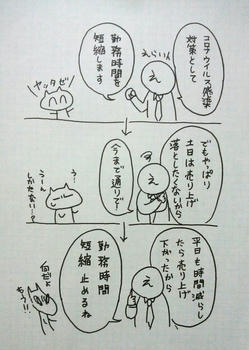 コロナウイルス感染
対策として
えらい人
え
勤務時間を
短縮します
ヤッタゼ!
でもやっぱり
土日は売り上げ
落としたくないから
今まで通りで
え
う…
うーん
しかたない…?
平日も時間減らし
たら売り上げ
下がったから
え
勤務時間
短縮 止めるね
何だよ
もう!!